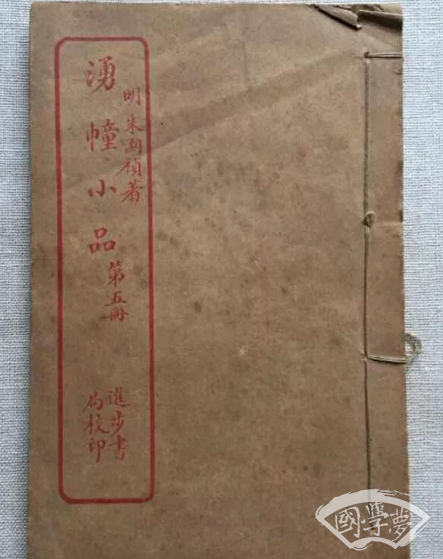 明朱國禎著
湧幢小品
第五冊
進步書
局校印
國學夢